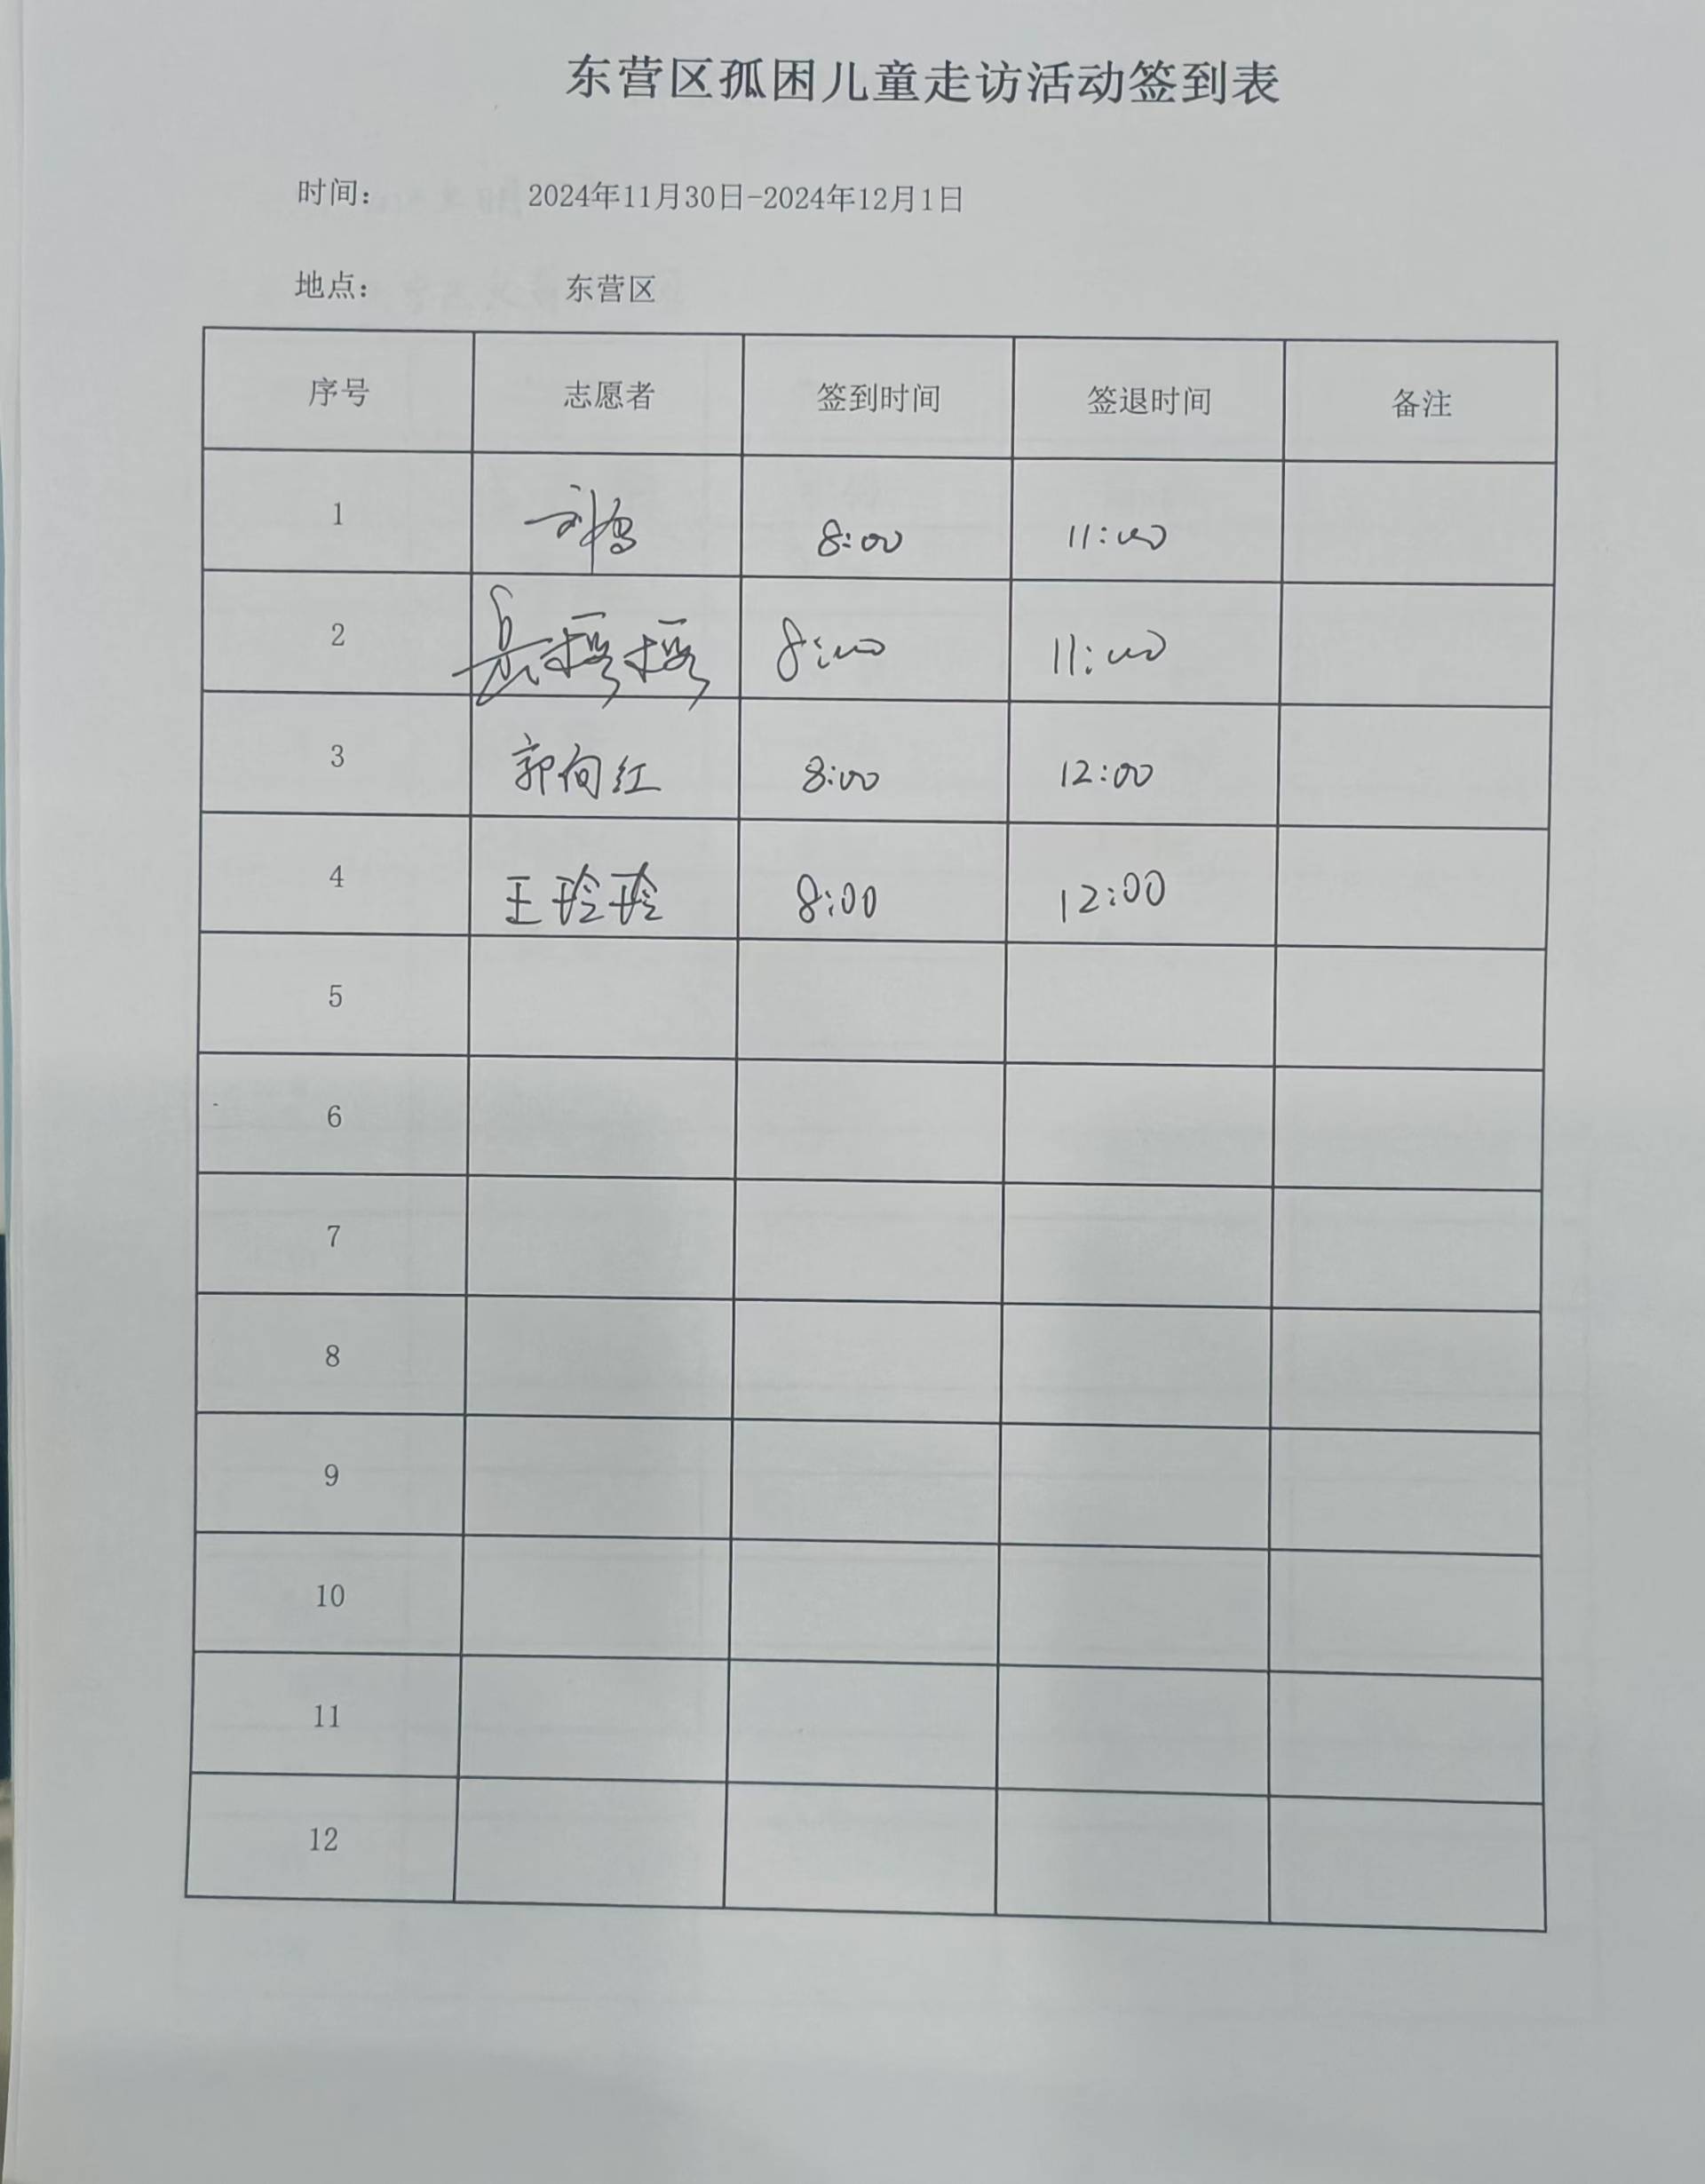 东营区孤困儿童走访活动签到表
时间： 2024年11月30日-2024年12月1日
地点： 东营区
序号 志愿者 签到时间 签退时间 备注
1 8:00 11:00
2 8:00 11:00
3 郭向红 8:00 12:00
4 王玲玲 8:00 12:00
5
6
7
8
9
10
11
12